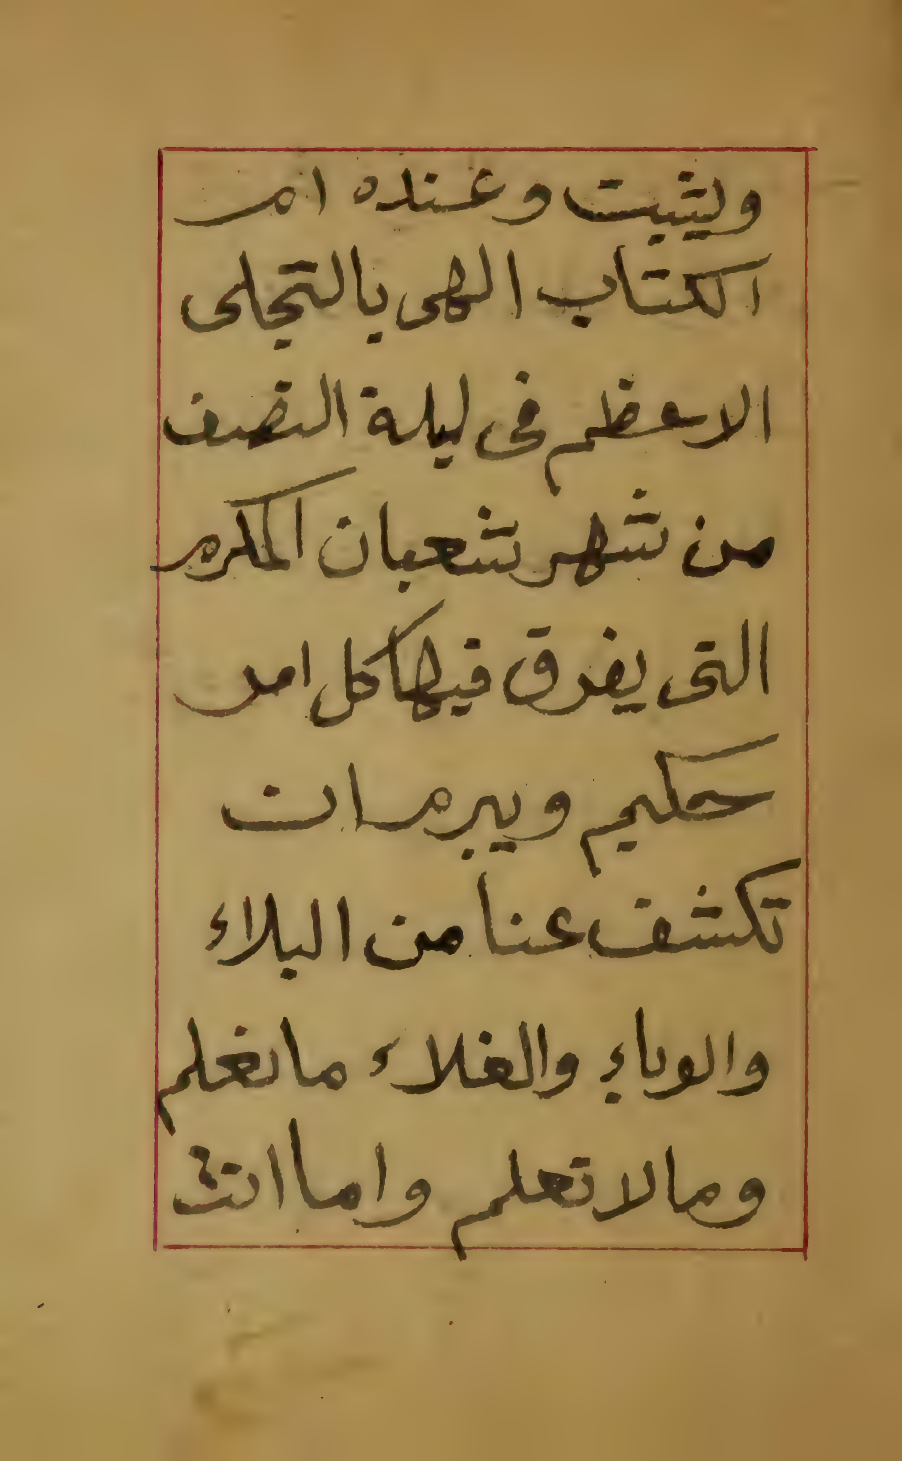 ويثبت وعنده ام
الكتاب الهى بالتجلى
الاعظم فى ليلة النصف
من شهر شعبان المكرم
التى يفرق فيها كل امر
حكيم ويبرم ان
تكشف عنا من البلاء
والوباء والغلاء ما نعلم
وما لا نعلم واما انت